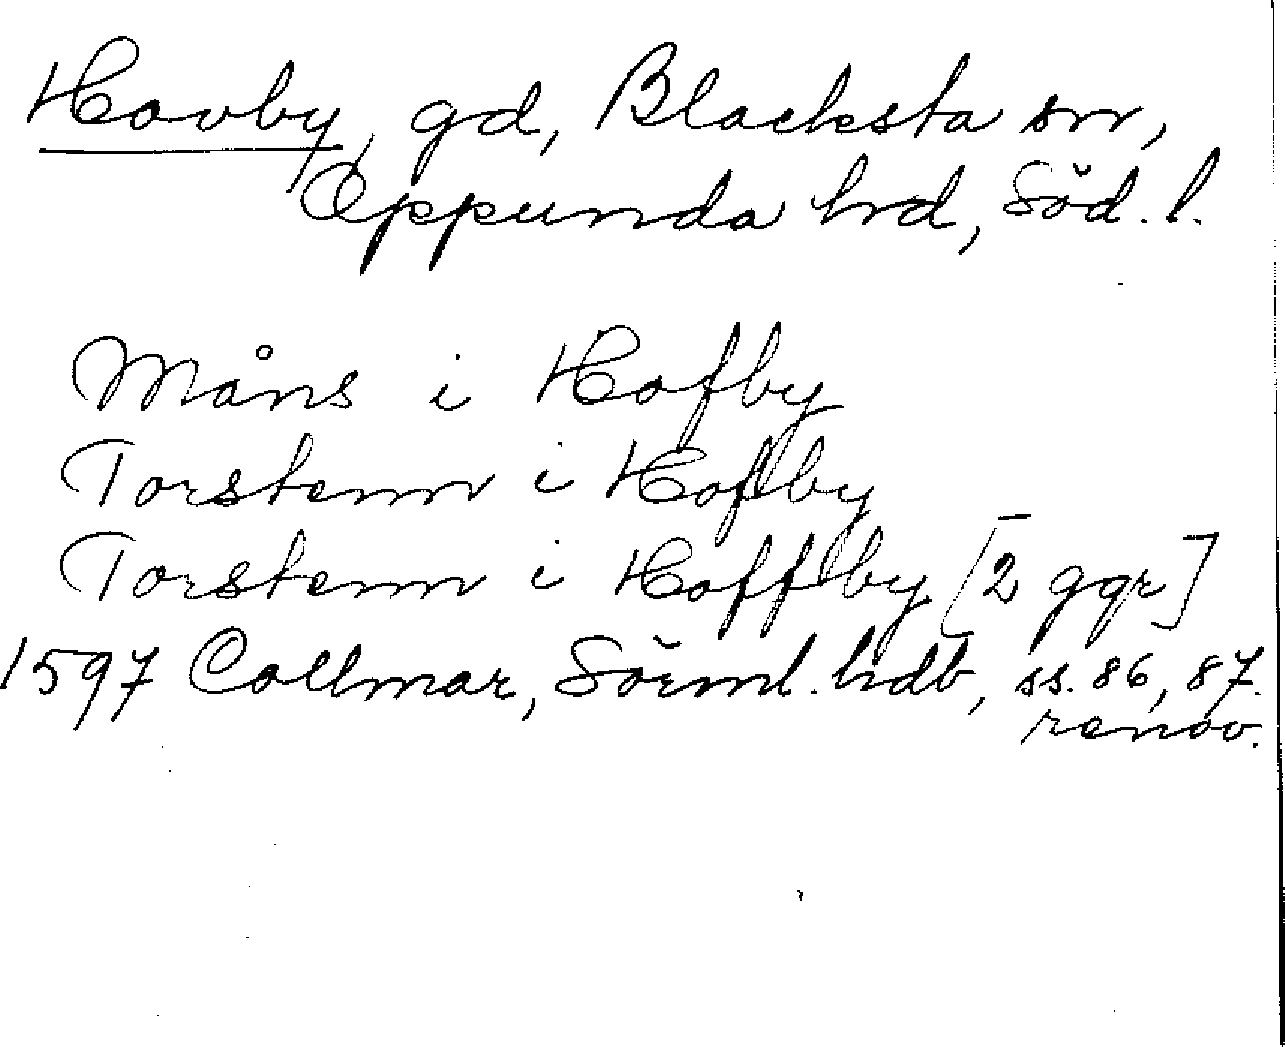 Hovby, gd, Blacksta sn,
Oppunda hd, Söd. l.
Måns i Hofby
Torstenn i Hofby
Torstenn i Hoffby [2 ggr]
1597 Collmar, Sörml. hdb, ss. 86, 87.
renov.